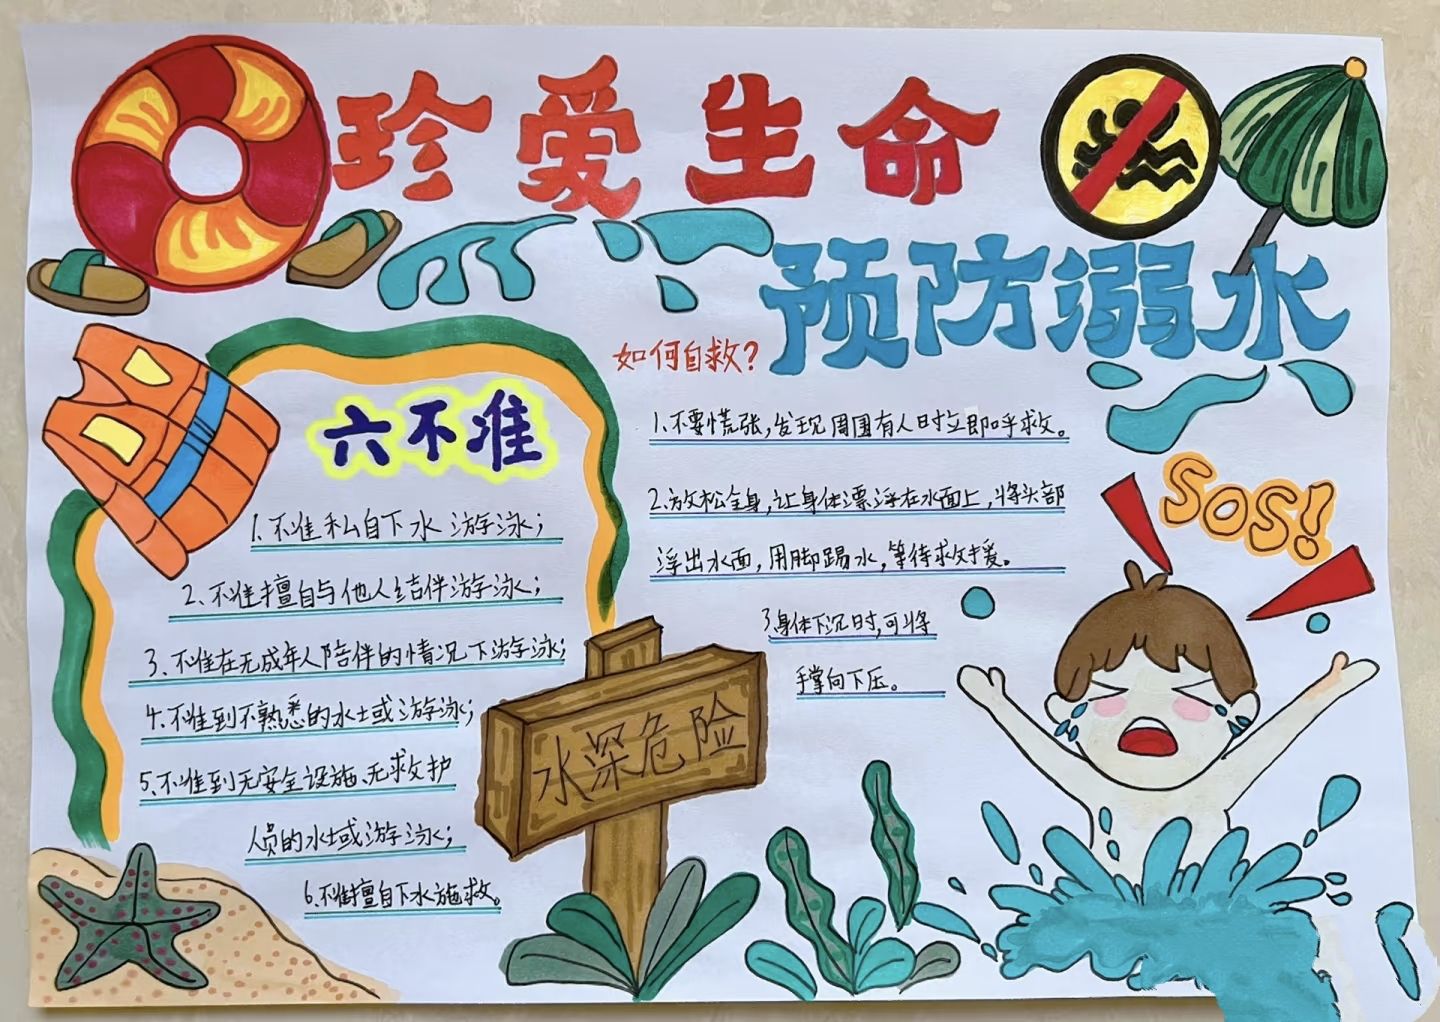 珍爱生命
预防溺水
六不准
1、不准私自下水游泳；
2、不准擅自与他人结伴游泳；
3、不准在无成年人陪伴的情况下游泳；
4、不准到不熟悉的水域游泳；
5、不准到无安全设施、无救护
人员的水域游泳；
6、不准擅自下水施救。
水深危险
如何自救？
1、不要慌张，发现周围有人时立即呼救。
2、放松全身，让身体漂浮在水面上，将头部
浮出水面，用脚踢水，等待救援。
3、身体下沉时，可将
手掌向下压。
SOS!